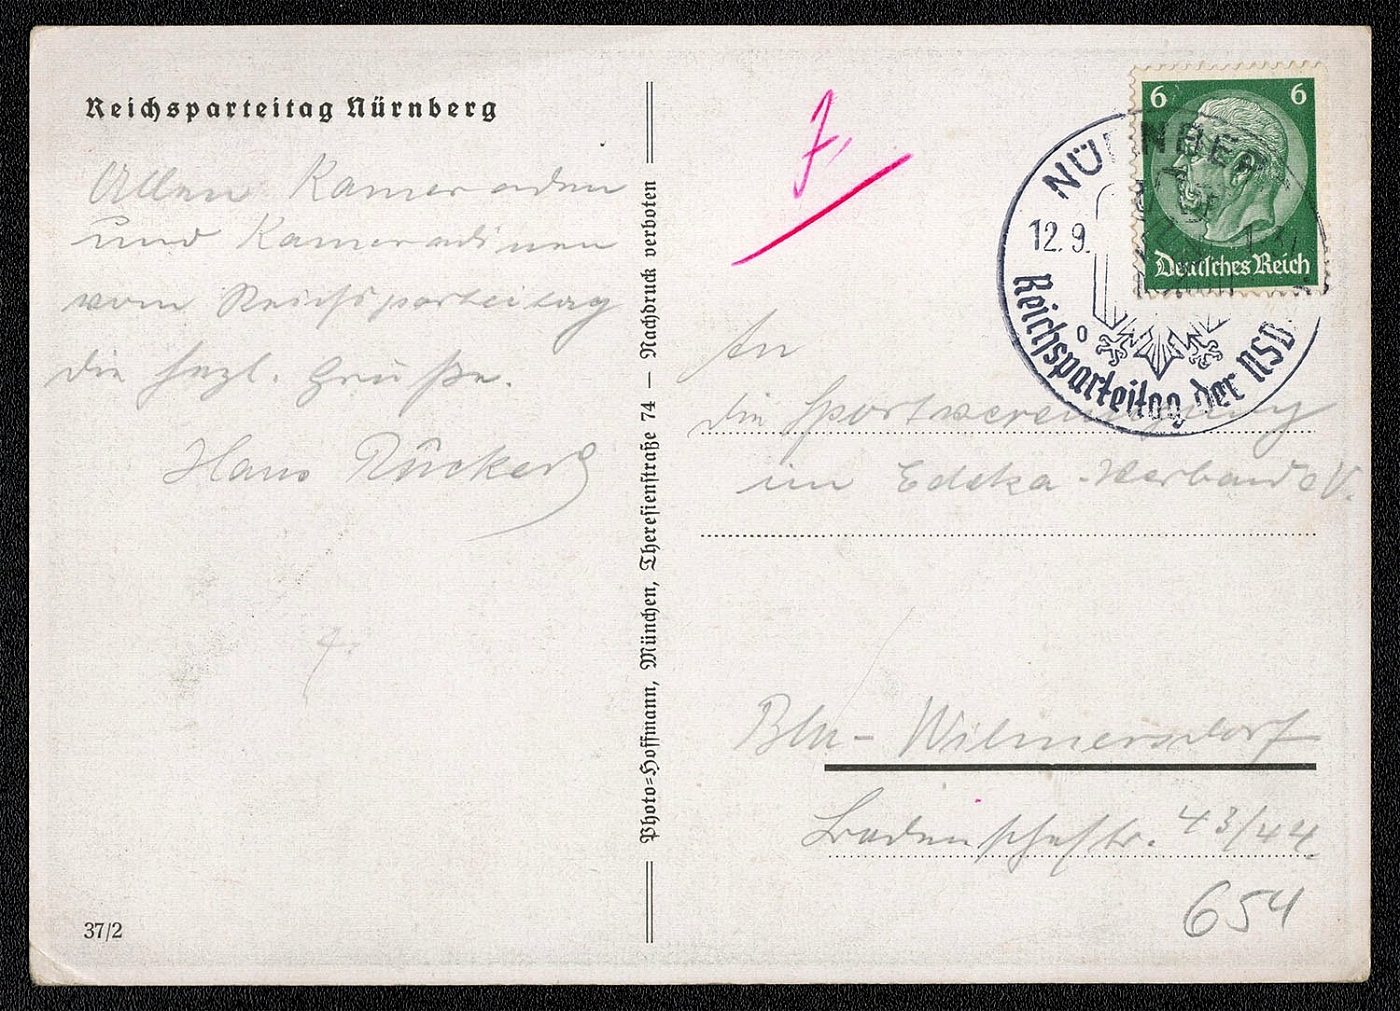 Reichsparteitag Nürnberg
Allen Kameraden
und Kameradinnen
vom Reichsparteitag
die hrzl. Grüße.
Hans Rückert
37/2
Photo-Hoffmann, München, Theresienstraße 74 — Nachdruck verboten
6 6
Deutsches Reich
NÜRNBERG
12.9.
Reichsparteitag der NSD
An
die Sportvereinigung
im Edeka-Verband e.V.
Bln-Wilmersdorf
Badenschestr. 43/44
654